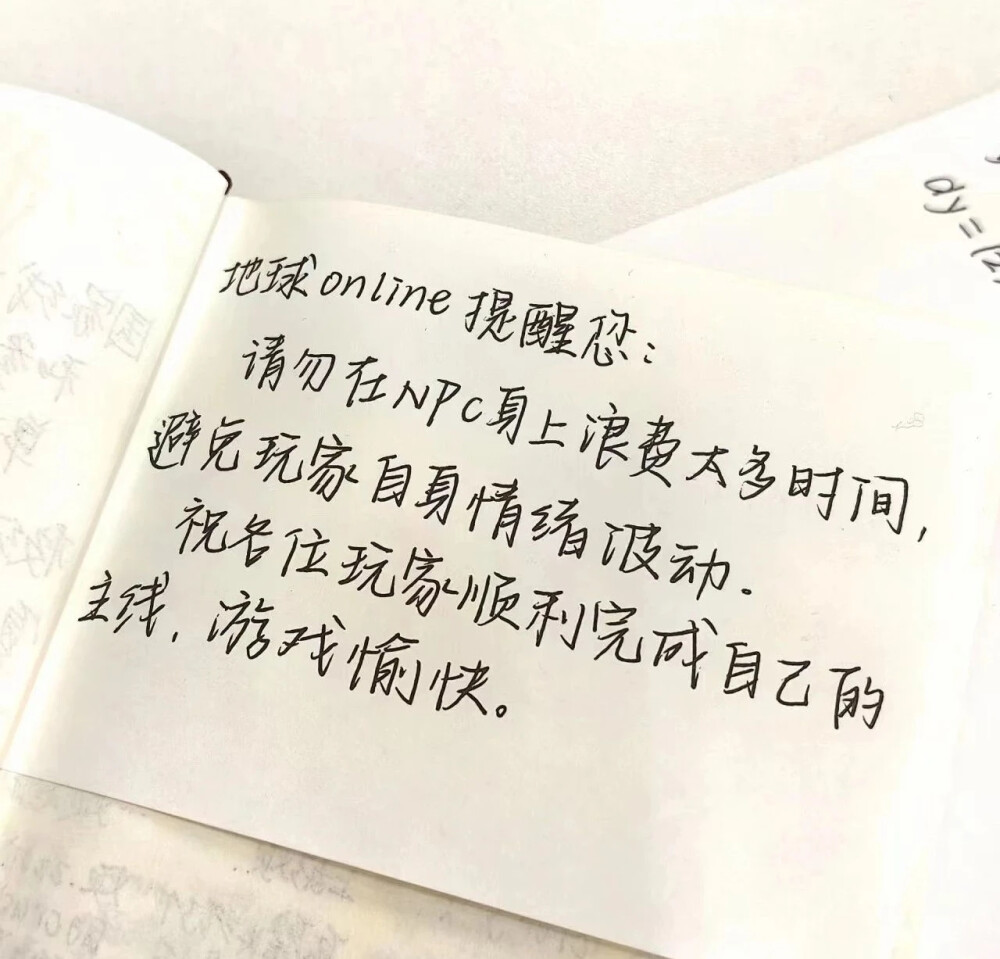 地球online提醒您：
请勿在NPC身上浪费太多时间，
避免玩家自身情绪波动.
祝各位玩家顺利完成自己的
主线，游戏愉快。
dy=